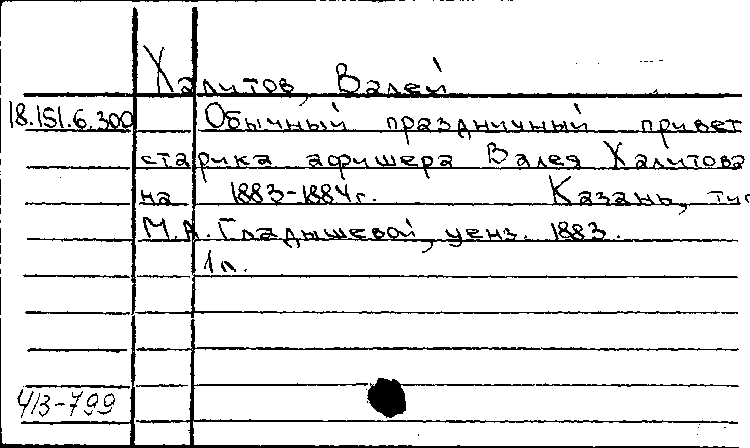 Халитов, Валей
18.151.6.300 Обычный праздничный привет
старика афишера Валея Халитова
на 1883-1884г. Казань, тип
М.А. Гладышевой, ценз. 1883.
1л.
413-799